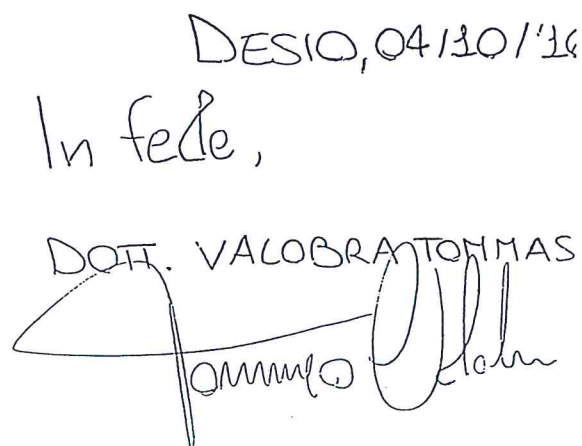 DESIO, 04/10/'16
In fede,
DOTT. VALOBRA TOMMAS
Tommaso Valobra